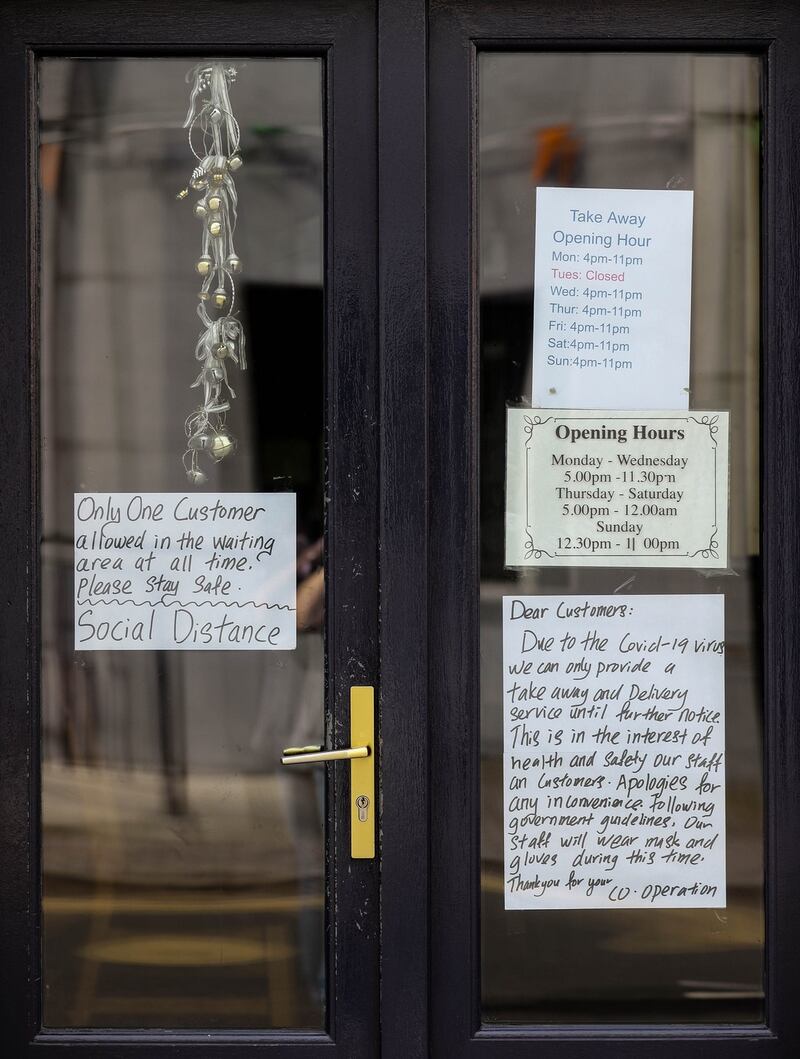 Only One Customer
allowed in the waiting
area at all time.
Please Stay Safe.
Social Distance
Take Away
Opening Hour
Mon: 4pm-11pm
Tues: Closed
Wed: 4pm-11pm
Thur: 4pm-11pm
Fri: 4pm-11pm
Sat:4pm-11pm
Sun:4pm-11pm
Opening Hours
Monday - Wednesday
5.00pm -11.30pm
Thursday - Saturday
5.00pm - 12.00am
Sunday
12.30pm - 11 00pm
Dear Customers:
Due to the Covid-19 virus
we can only provide a
take away and Delivery
service until further notice.
This is in the interest of
health and safety our staff
an Customers. Apologies for
any inconvenience. Following
government guidelines. Our
staff will wear mask and
gloves during this time.
Thankyou for your co-operation